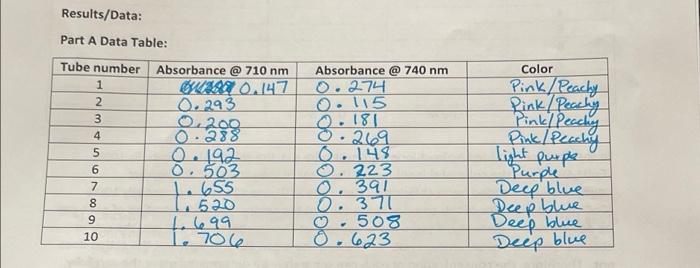 Results/Data:
Part A Data Table:
Tube number Absorbance @ 710 nm Absorbance @ 740 nm Color
1 0.147 0.274 Pink/Peachy
2 0.293 0.115 Pink/Peachy
3 0.200 0.181 Pink/Peachy
4 0.288 0.269 Pink/Peachy
5 0.192 0.148 light purple
6 0.503 0.223 Purple
7 1.655 0.391 Deep blue
8 1.520 0.371 Deep blue
9 1.699 0.508 Deep blue
10 1.706 0.623 Deep blue